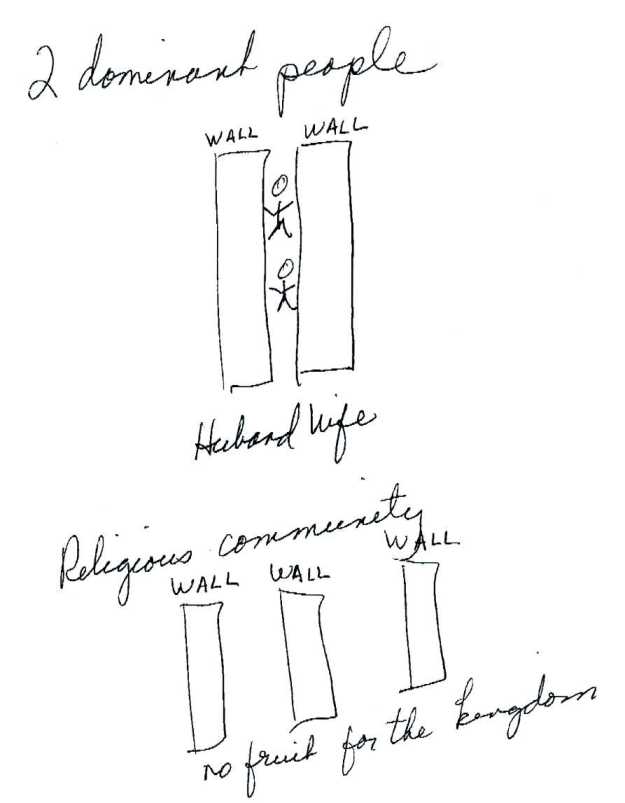 2 dominant people
WALL WALL
Huband Wife
Religious community
WALL WALL WALL
no fruit for the kingdom